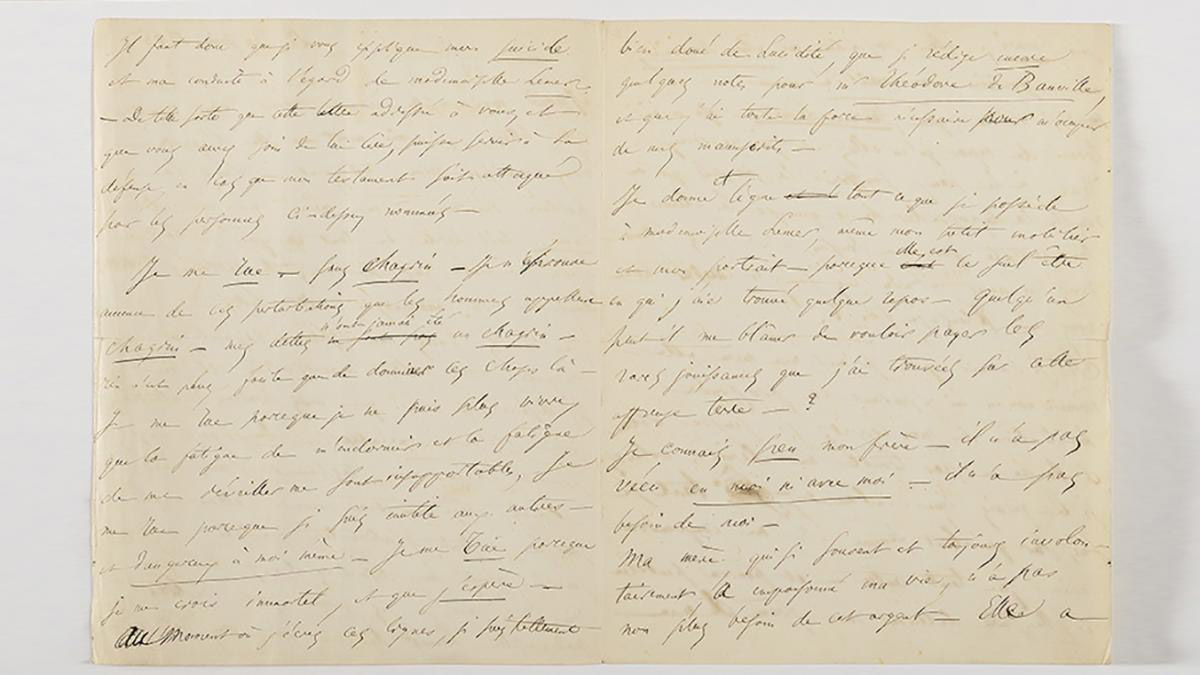 Il faut donc que je vous explique mon suicide
et ma conduite à l'égard de mademoiselle Lemer.
— De telle sorte que cette lettre adressée à vous, et
que vous aurez soin de lui lire, puisse servir à sa
défense, en cas que mon testament soit attaqué
par les personnes ci-dessus nommées —
Je me tue — sans chagrin — Je n'éprouve
aucune de ces perturbations que les hommes appellent
n'ont jamais été
chagrin — mes dettes ne sont pas un chagrin —
rien n'est plus facile que de dominer ces choses là —
Je me tue parce que je ne puis plus vivre,
que la fatigue de m'endormir et la fatigue
de me réveiller me sont insupportables, Je
me tue parce que je suis inutile aux autres —
et dangereux à moi même — Je me tue parce que
je me crois immortel, et que j'espère —
Au moment où j'écris ces lignes, je suis tellement
bien doué de lucidité, que je rédige encore
quelques notes pour mr Théodore de Banville,
et que j'ai toute la force nécessaire pour m'occuper
de mes manuscrits —
Je donne et lègue tout ce que je possède
à mademoiselle Lemer, même mon petit mobilier
elle est
et mon portrait — parce que le seul être
en qui j'aie trouvé quelque repos — Quelqu'un
peut-il me blâmer de vouloir payer les
rares jouissances que j'ai trouvées sur cette
affreuse terre — ?
Je connais peu mon frère — il n'a pas
vécu en moi ni avec moi — il n'a pas
besoin de moi —
Ma mère qui si souvent et toujours involon-
tairement a empoisonné ma vie, n'a pas
non plus besoin de cet argent — Elle a